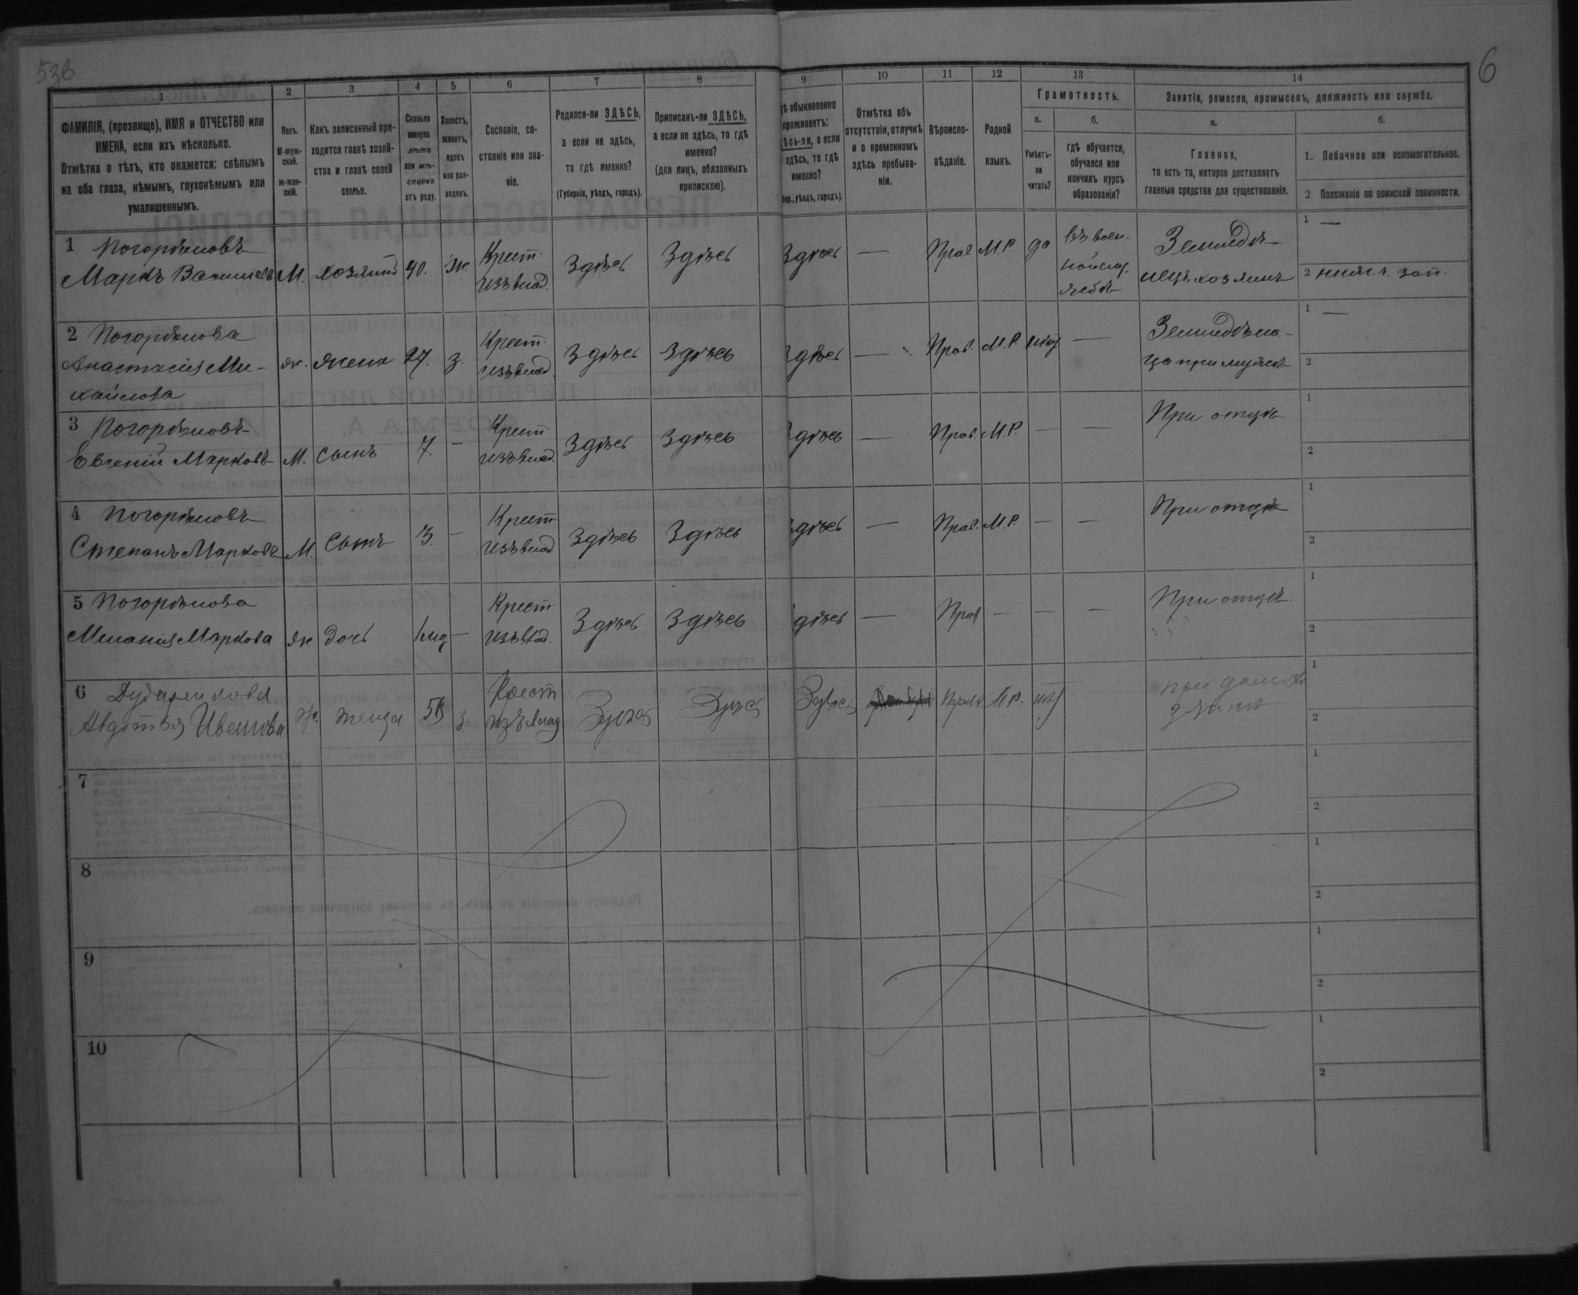 536
6
1
2
3
4
5
6
7
8
9
10
11
12
13
14
ФАМИЛІЯ, (прозвище), ИМЯ и ОТЧЕСТВО или
ИМЕНА, если ихъ нѣсколько.
Отмѣтка о тѣхъ, кто окажется: слѣпымъ
на оба глаза, нѣмымъ, глухонѣмымъ или
умалишеннымъ.
Полъ.
М-муж-
ской.
Ж-жен-
скій.
Какъ записанный при-
ходится главѣ хозяй-
ства и главѣ своей
семьи.
Сколько
минуло
лѣтъ
или мѣ-
сяцевъ
отъ роду.
Холостъ,
женатъ,
вдовъ
или раз-
веденъ.
Сословіе, со-
стояніе или зва-
ніе.
Родился-ли ЗДѢСЬ,
а если не здѣсь,
то гдѣ именно?
(Губернія, уѣздъ, городъ).
Приписанъ-ли ЗДѢСЬ,
а если не здѣсь, то гдѣ
именно?
(для лицъ, обязанныхъ
припискою).
обыкновенно
проживаетъ:
а если
здѣсь, то гдѣ
именно?
уѣздъ, городъ).
Отмѣтка объ
отсутствіи, отлучкѣ
и о временномъ
здѣсь пребыва-
ніи.
Вѣроиспо-
вѣданіе.
Родной
языкъ.
Грамотность.
а.
б.
Умѣетъ-
ли
читать?
гдѣ обучается,
обучался или
кончилъ курсъ
образованія?
Занятія, ремесло, промыселъ, должность или служба.
а.
б.
Главное,
то есть то, которое доставляетъ
главныя средства для существованія.
1. Побочное или вспомогательное.
2 Положеніе по воинской повинности.
1 Погорѣловъ
Маркъ Васильевъ М. хозяинъ 40. Ж Крест. изъ влад. Здѣсь Здѣсь Здѣсь — Прав М.Р. да
въ воен-
ной слу-
жбѣ
Земледѣ-
лецъ хозяинъ
1 —
2
2 Погорѣлова
Анастасія Ми-
хайлова
ж. жена 27. з. Крест. изъ влад Здѣсь Здѣсь здѣсь — Прав. М.Р. нѣт —
Земледѣли-
ца при мужѣ
1 —
2
3 Погорѣловъ
Евгеній Марковъ М. сынъ 7. — Крест изъ влад Здѣсь Здѣсь здѣсь — Прав. М.Р. — —
При отцѣ
1
2
4 Погорѣловъ
Степанъ Марковъ М. Сынъ 3. — Крест изъ влад Здѣсь Здѣсь здѣсь — Прав. М.Р. — —
При отцѣ
1
2
5 Погорѣлова
Меланія Маркова ж дочь — Крест изъ влад. Здѣсь Здѣсь здѣсь — Прав — — —
При отцѣ
1
2
6
Авдотья жр. Крест изъ влад Здѣсь Здѣсь Здѣсь Прав М.Р. нѣт
при
1
2
7
1
2
8
1
2
9
1
2
10
1
2